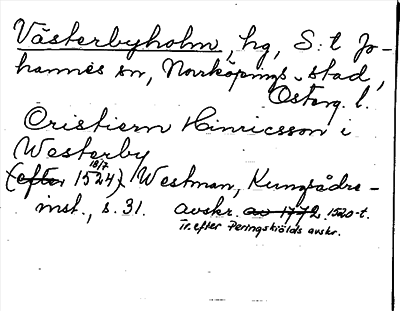 Västerbyholm, hg, S:t Jo-
hannes sn, Norrköpings stad,
Österg. l.
Cristiern Hinricsson i
Westerby
18/7
(efter 1524). Westman, Kungsådre-
inst., s. 31. avskr. av 1772. 1520-t.
Tr. efter Peringskiölds avskr.